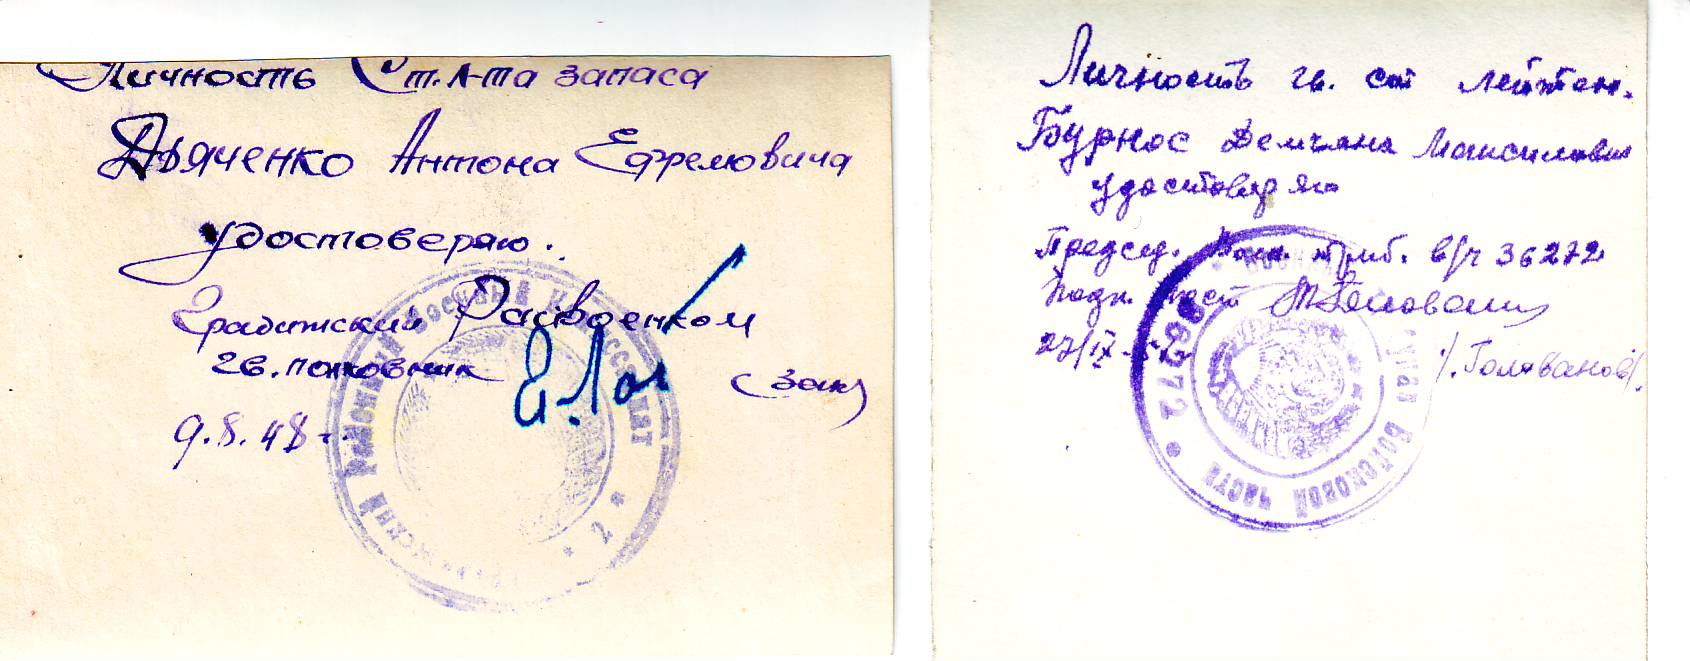 Личность Ст. л-та запаса
Дьяченко Антона Ефремовича
удостоверяю.
Градижский Райвоенком
гв. полковник (Зак)
9.8.48
районный военный комиссариат
* 2 *
Личность гв. ст лейтен.
Бурнос Демьяна Максимович
удостоверяю
Председ. в/ч 36272
27/IX-
/.Голованов/.
36272 * войсковой части *